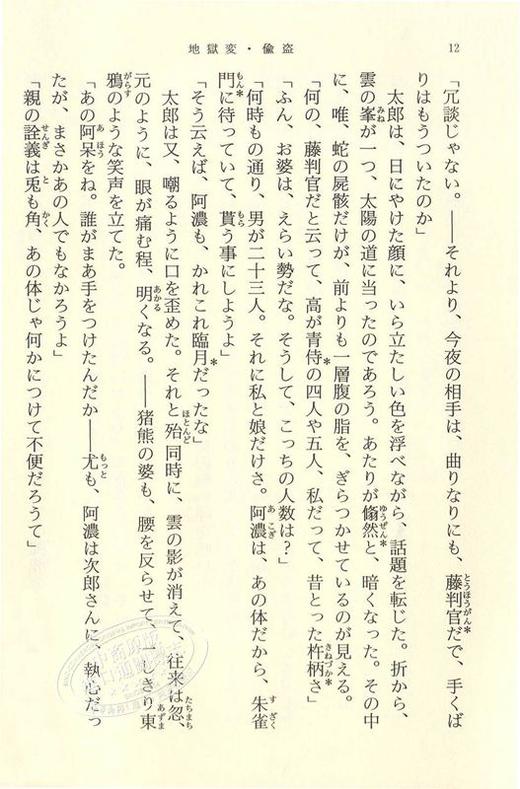 地獄変・偸盗
12
「冗談じゃない。――それより、今夜の相手は、曲りなりにも、藤判官だで、手くば
りはもうついたのか」
太郎は、日にやけた顔に、いら立たしい色を浮べながら、話題を転じた。折から、
雲の峯が一つ、太陽の道に当ったのであろう。あたりが翛然と、暗くなった。その中
に、唯、蛇の屍骸だけが、前よりも一層腹の脂を、ぎらつかせているのが見える。
「何の、藤判官だと云って、高が青侍の四人や五人、私だって、昔とった杵柄さ」
「ふん、お婆は、えらい勢だな。そうして、こっちの人数は？」
「何時もの通り、男が二十三人。それに私と娘だけさ。阿濃は、あの体だから、朱雀
門に待っていて、貰う事にしようよ」
「そう云えば、阿濃も、かれこれ臨月だったな」
太郎は又、嘲るように口を歪めた。それと殆同時に、雲の影が消えて、往来は忽、
元のように、眼が痛む程、明くなる。――猪熊の婆も、腰を反らせて、一しきり東
鴉のような笑声を立てた。
「あの阿呆をね。誰がまあ手をつけたんだか――尤も、阿濃は次郎さんに、執心だっ
たが、まさかあの人でもなかろうよ」
「親の詮義は兎も角、あの体じゃ何かにつけて不便だろうて」